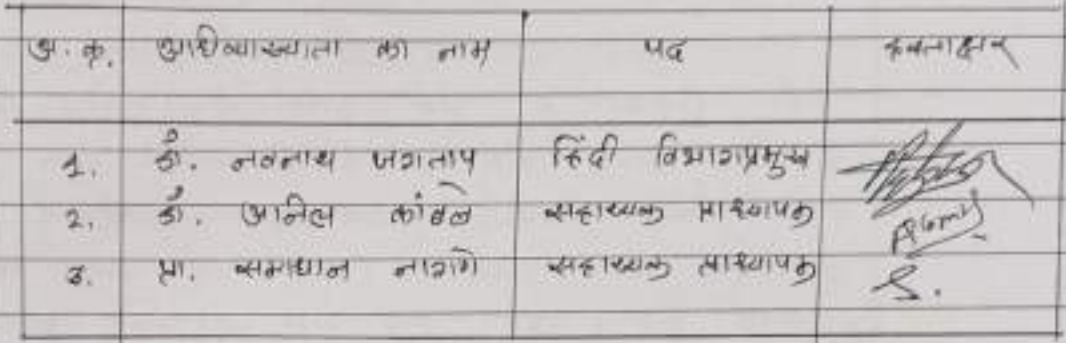 अ. क्र. अधिव्याख्याता का नाम पद हस्ताक्षर
1. डॉ. नवनाथ जगताप हिंदी विभागप्रमुख
2. डॉ. अनिल कांबळे सहाय्यक प्राध्यापक
3. प्रा. समाधान नागणे सहाय्यक प्राध्यापक